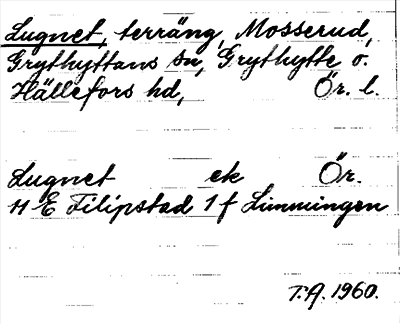 Lugnet, terräng, Mosserud,
Grythyttans sn, Grythytte o.
Hällefors hd, Ör. l.
Lugnet ek Ör.
11 E Filipstad 1 f Limmingen
T.A. 1960.